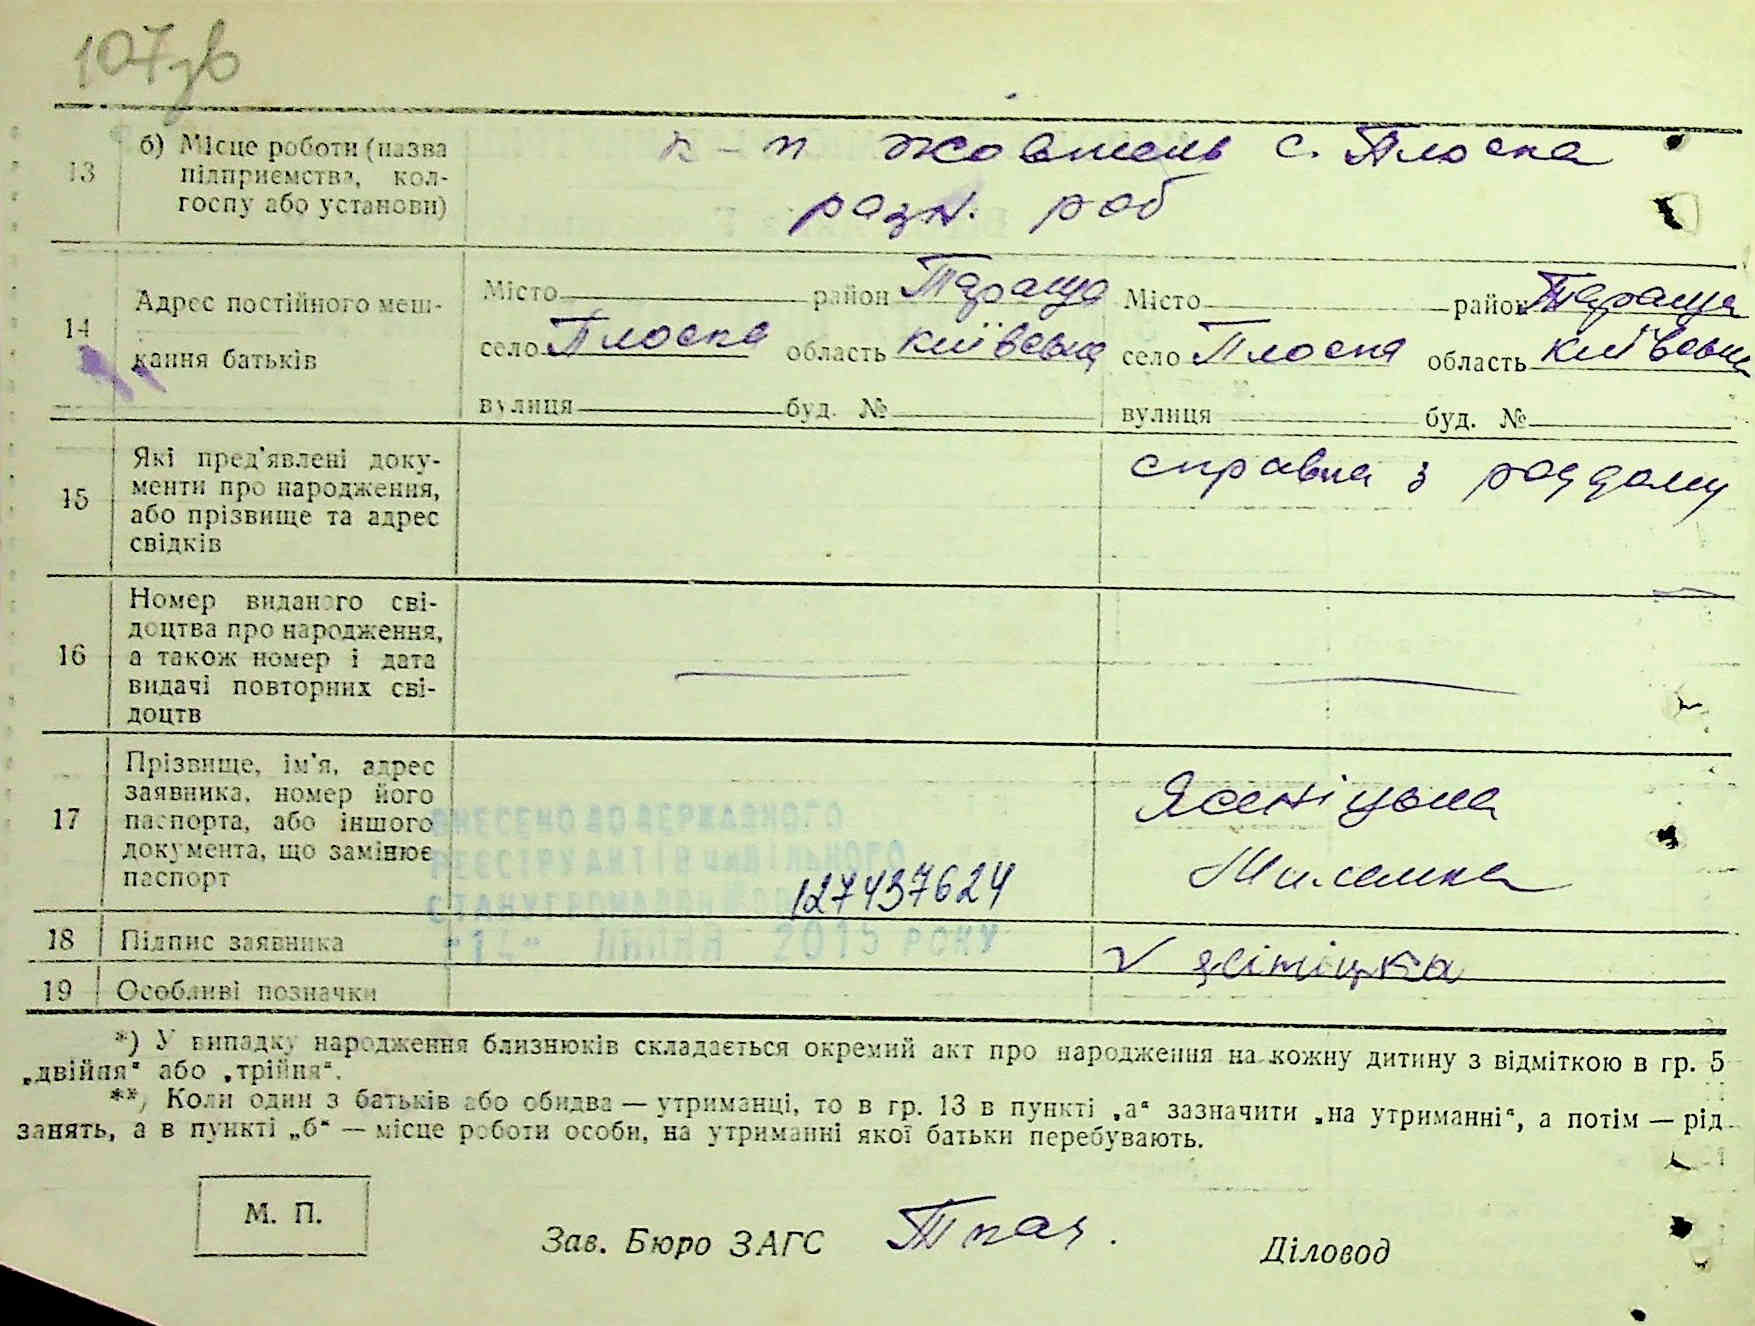 107зв
13 б) Місце роботи (назва підприємства, колгоспу або установи)
к-п жовтень с. Плоска
разн. роб
14 Адрес постійного мешкання батьків
Місто район Тараща Місто район Тараща
село Плоска область київська село Плоска область київська
вулиця буд. № вулиця буд. №
15 Які пред'явлені документи про народження, або прізвище та адрес свідків
справка з роддому
16 Номер виданого свідоцтва про народження, а також номер і дата видачі повторних свідоцтв
17 Прізвище, ім'я, адрес заявника, номер його паспорта, або іншого документа, що замінює паспорт
ВНЕСЕНО ДО ДЕРЖАВНОГО
РЕЄСТРУ АКТІВ ЦИВІЛЬНОГО
СТАНУ ГРОМАДЯН
127437624
ЛИПНЯ 2015 РОКУ
18 Підпис заявника
19 Особливі позначки
*) У випадку народження близнюків складається окремий акт про народження на кожну дитину з відміткою в гр. 5
„двійня“ або „трійня“.
**) Коли один з батьків або обидва — утриманці, то в гр. 13 в пункті „а“ зазначити „на утриманні“, а потім — рід
занять, а в пункті „б“ — місце роботи особи, на утриманні якої батьки перебувають.
М. П.
Зав. Бюро ЗАГС Ткач. Діловод